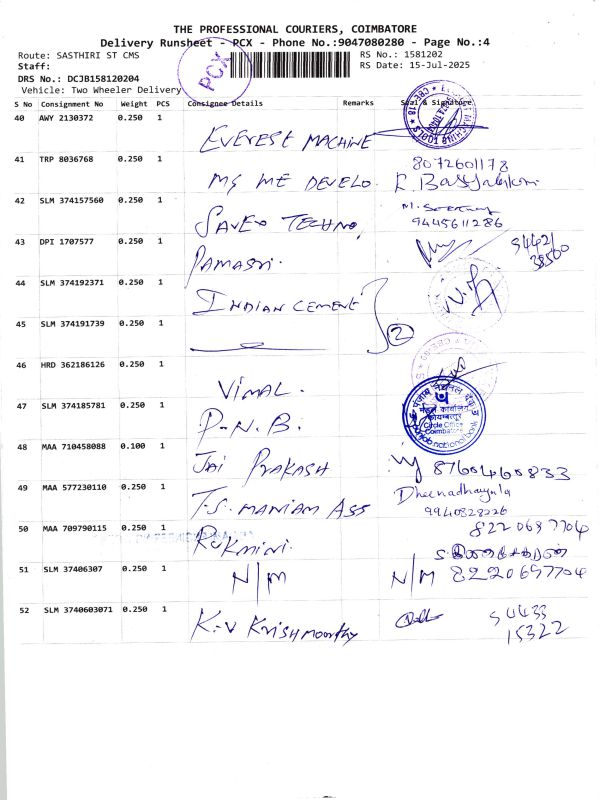 THE PROFESSIONAL COURIERS, COIMBATORE
Delivery Runsheet - PCX - Phone No.:9047080280 - Page No.:4
Route: SASTHIRI ST CMS
RS No.: 1581202
Staff:
RS Date: 15-Jul-2025
PCX
DRS No.: DCJB158120204
Vehicle: Two Wheeler Delivery
S No Consignment No Weight PCS Consignee Details Remarks Seal & Signature
40 AWY 2130372 0.250 1
EVEREST MACHINE
41 TRP 8036768 0.250 1
8072601178
MS ME DEVELO.
42 SLM 374157560 0.250 1
9445611286
SAVEO TECHNO,
43 DPI 1707577 0.250 1
94421
38500
PAMASRI.
44 SLM 374192371 0.250 1
INDIAN CEMENT
45 SLM 374191739 0.250 1
2
46 HRD 362186126 0.250 1
VIMAL.
47 SLM 374185781 0.250 1
P.N.B.
मंडल कार्यालय
कोयम्बत्तूर
Circle Office
Coimbatore
punjab national bank
48 MAA 710458088 0.100 1
JAI PRAKASH
8760460833
49 MAA 577230110 0.250 1
Dheenadhayala
9940828226
T.S. MANIAM ASS
50 MAA 709790115 0.250 1
8220657704
RUKMINI.
51 SLM 37406307 0.250 1
N/M
N/M 8220657704
52 SLM 3740603071 0.250 1
K.V KRISHMOORTHY
94433
15322